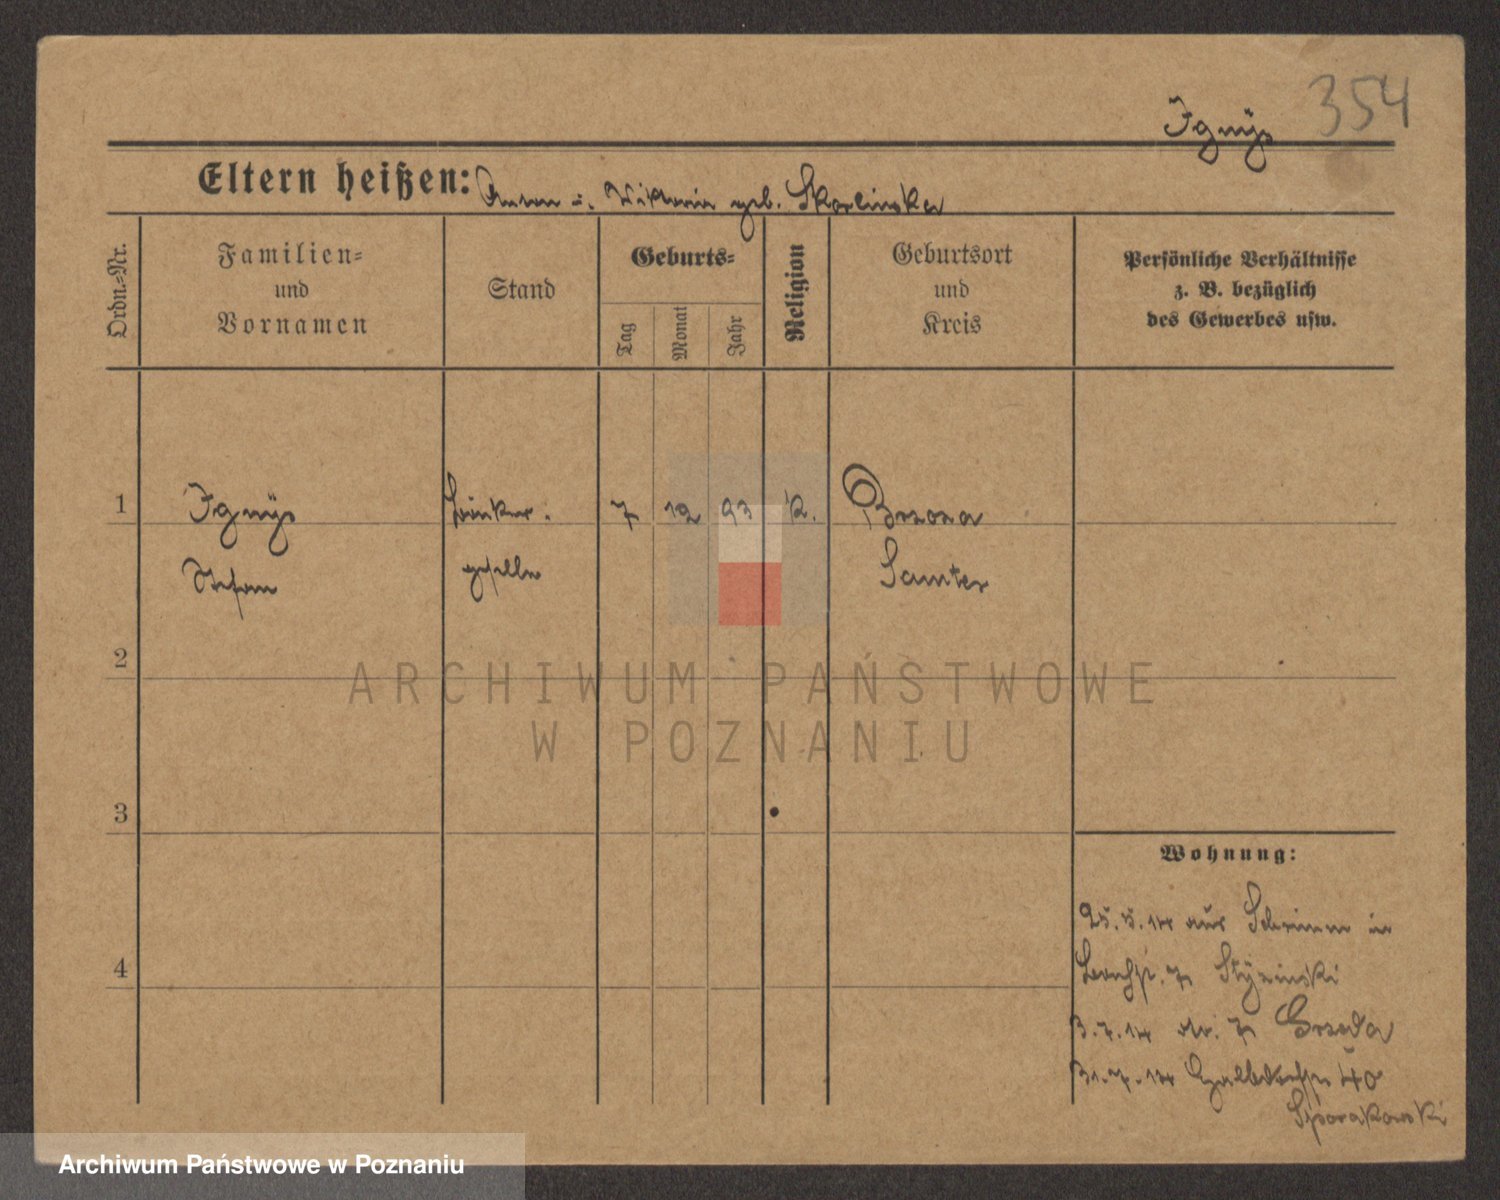 354
Ignÿs
Eltern heißen: Anton u. Viktoria geb. Skorlinska
Ordn.-Nr.
Familien-
und
Vornamen
Stand
Geburts-
Tag
Monat
Jahr
Religion
Geburtsort
und
Kreis
Persönliche Verhältnisse
z. B. bezüglich
des Gewerbes usw.
1 Ignÿs 7 12 93 K. Brzoza
Stefan geselle Samter
2
ARCHIWUM PAŃSTWOWE
W POZNANIU
3
Wohnung:
25.5.14 aus Schrimm in
4
7 Styzinski
3.7.14 do. 7 Grzeda
31.7.14 40
Sporakowski
Archiwum Państwowe w Poznaniu